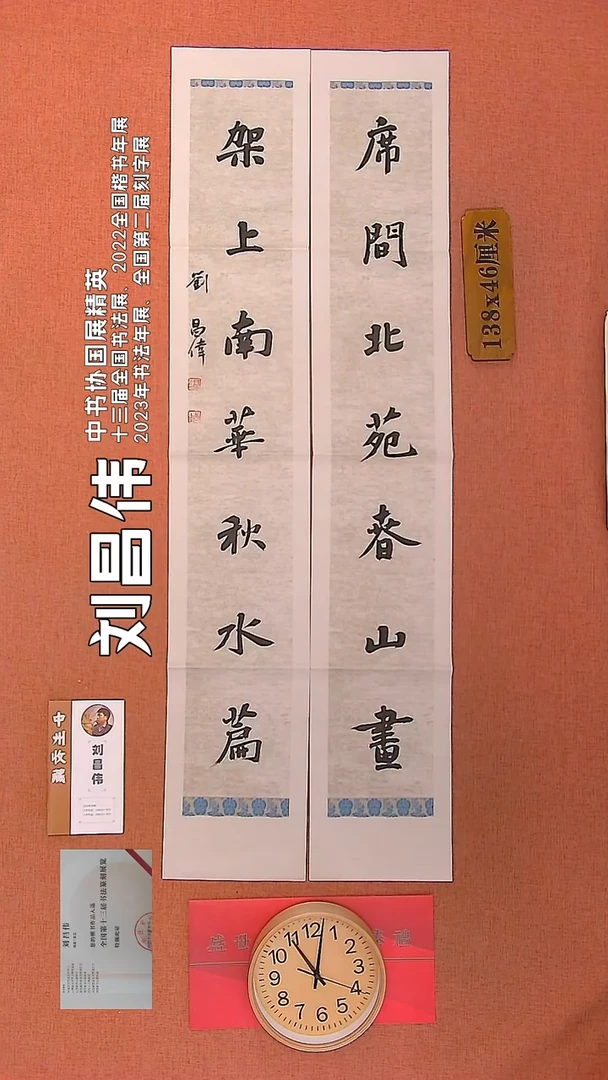 席間北苑春山畫
架上南華秋水篇
劉昌偉
138x46厘米
中书协国展精英
十三届全国书法展、2022全国楷书年展
2023年书法年展、全国第二届刻字展
刘昌伟
刘昌伟
刘昌伟
您的楷书作品入选
全国第十三届书法篆刻展览
特颁此证
12
1
2
3
4
5
6
7
8
9
10
11